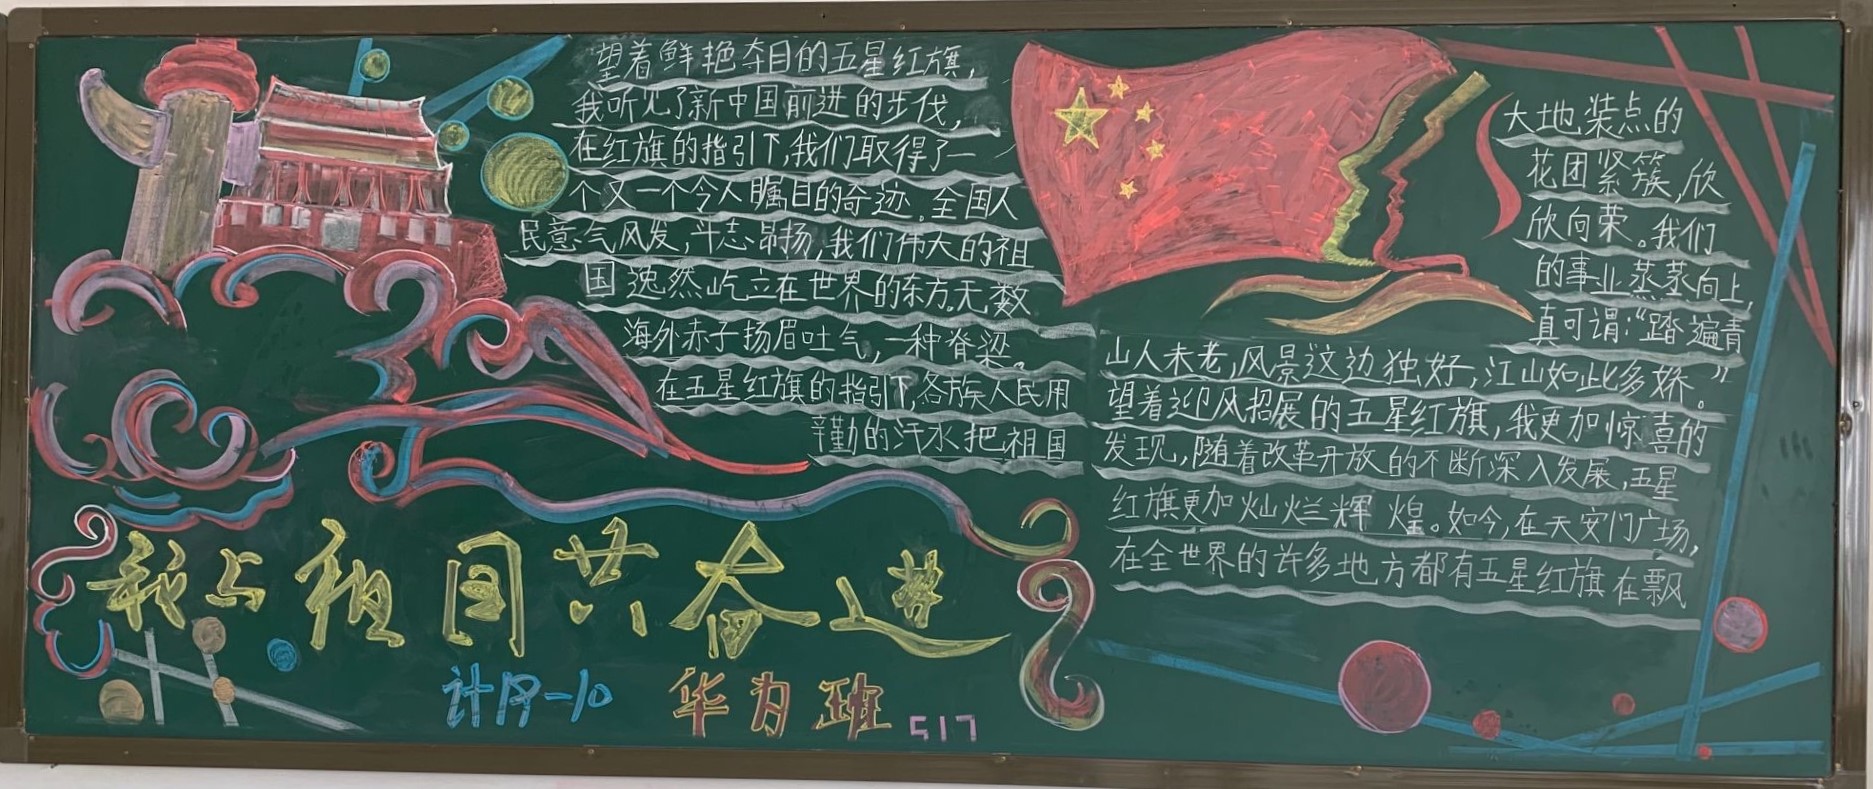 望着鲜艳夺目的五星红旗,
我听见了新中国前进的步伐,
在红旗的指引下,我们取得了一
个又一个令人瞩目的奇迹。全国人
民意气风发,斗志昂扬,我们伟大的祖
国逸然屹立在世界的东方。无数
海外赤子扬眉吐气,一种脊梁。
在五星红旗的指引下,各族人民用
辛勤的汗水把祖国
大地装点的
花团紧簇,欣
欣向荣。我们
的事业蒸蒸向上,
真可谓:“踏遍青
山人未老,风景这边独好,江山如此多娇。”
望着迎风招展的五星红旗,我更加惊喜的
发现,随着改革开放的不断深入发展,五星
红旗更加灿烂辉煌。如今,在天安门广场,
在全世界的许多地方都有五星红旗在飘
我与祖国共奋进
计用-10 华为班 517